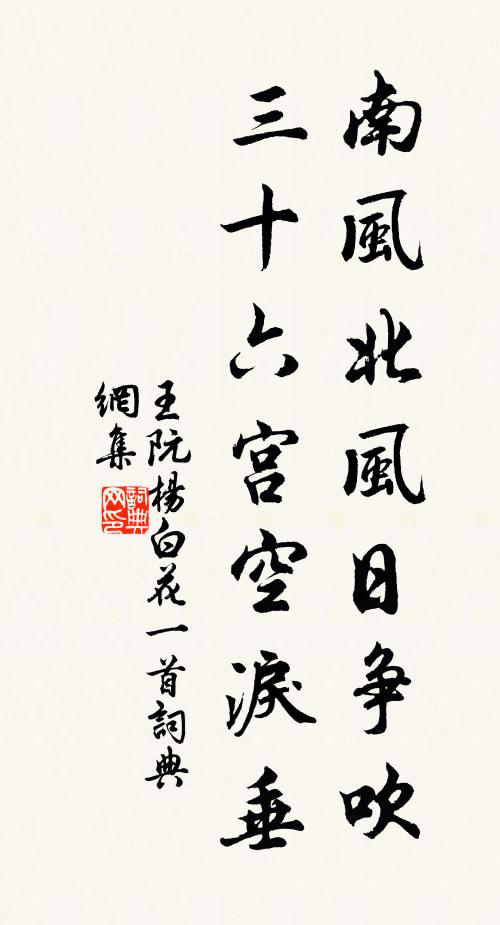 南風北風日争吹
三十六宫空淚垂
王阮楊白花一首詞典
網集
詞典
网印